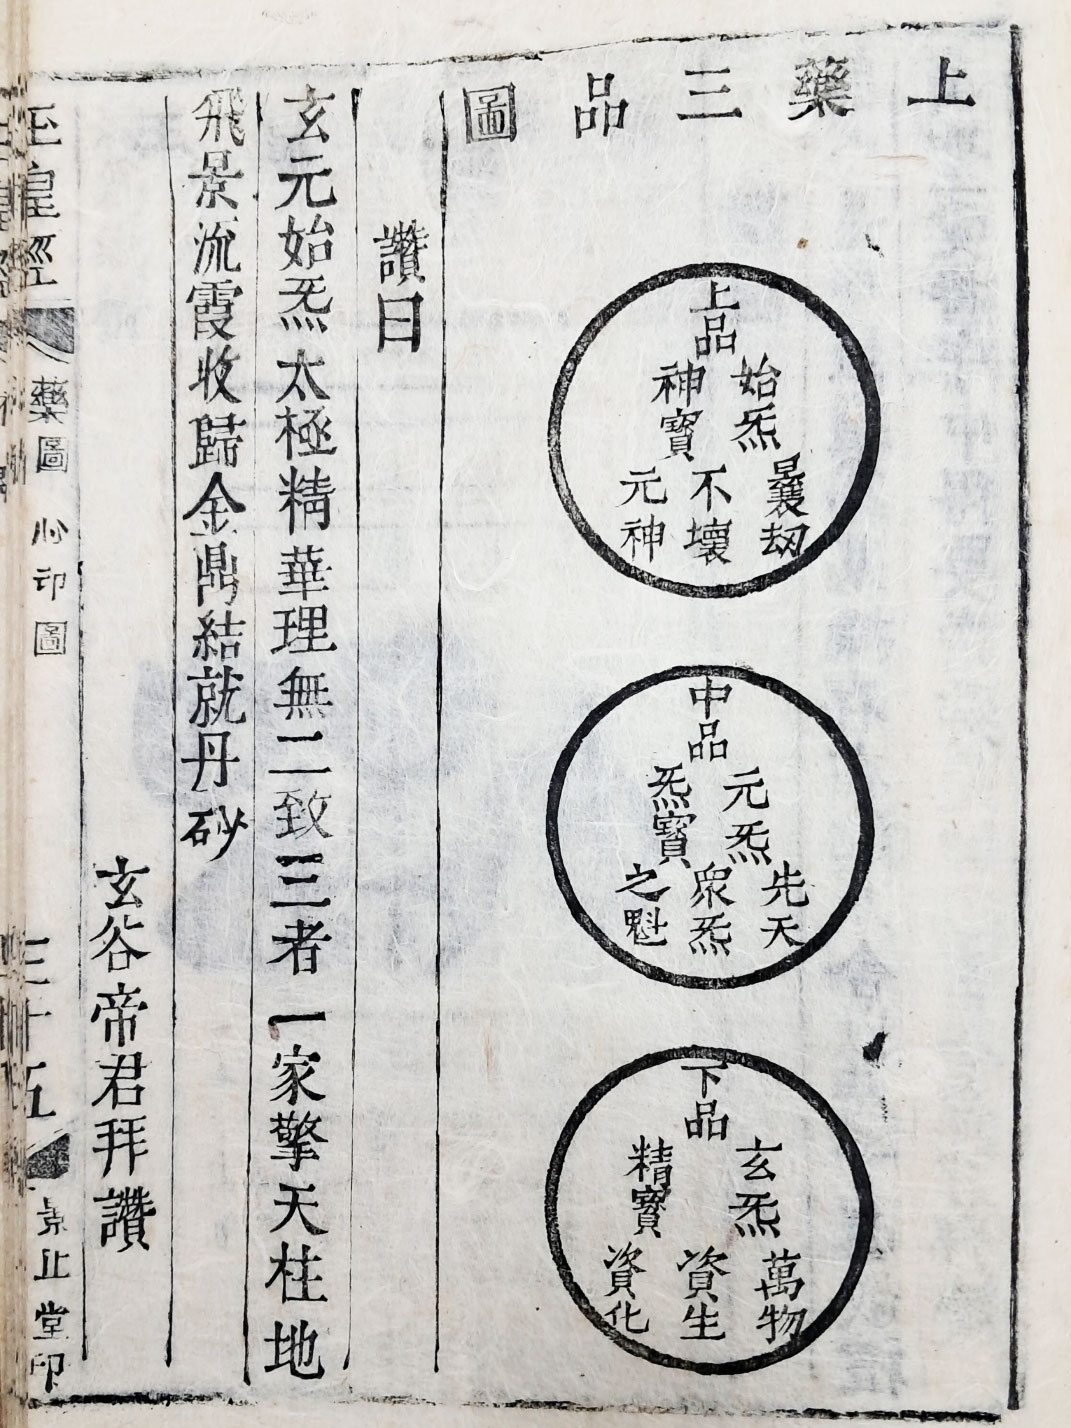 上藥三品圖
上品
始炁
神寶
曩劫
不壞
元神
中品
元炁
炁寶
先天
眾炁
之魁
下品
玄炁
精寶
萬物
資生
資化
讚曰
玄元始炁太極精華理無二致三者一家擎天柱地
飛景流霞收歸金鼎結就丹砂
玄谷帝君拜讚
玉皇經
藥圖
心印圖
三十五
景止堂印